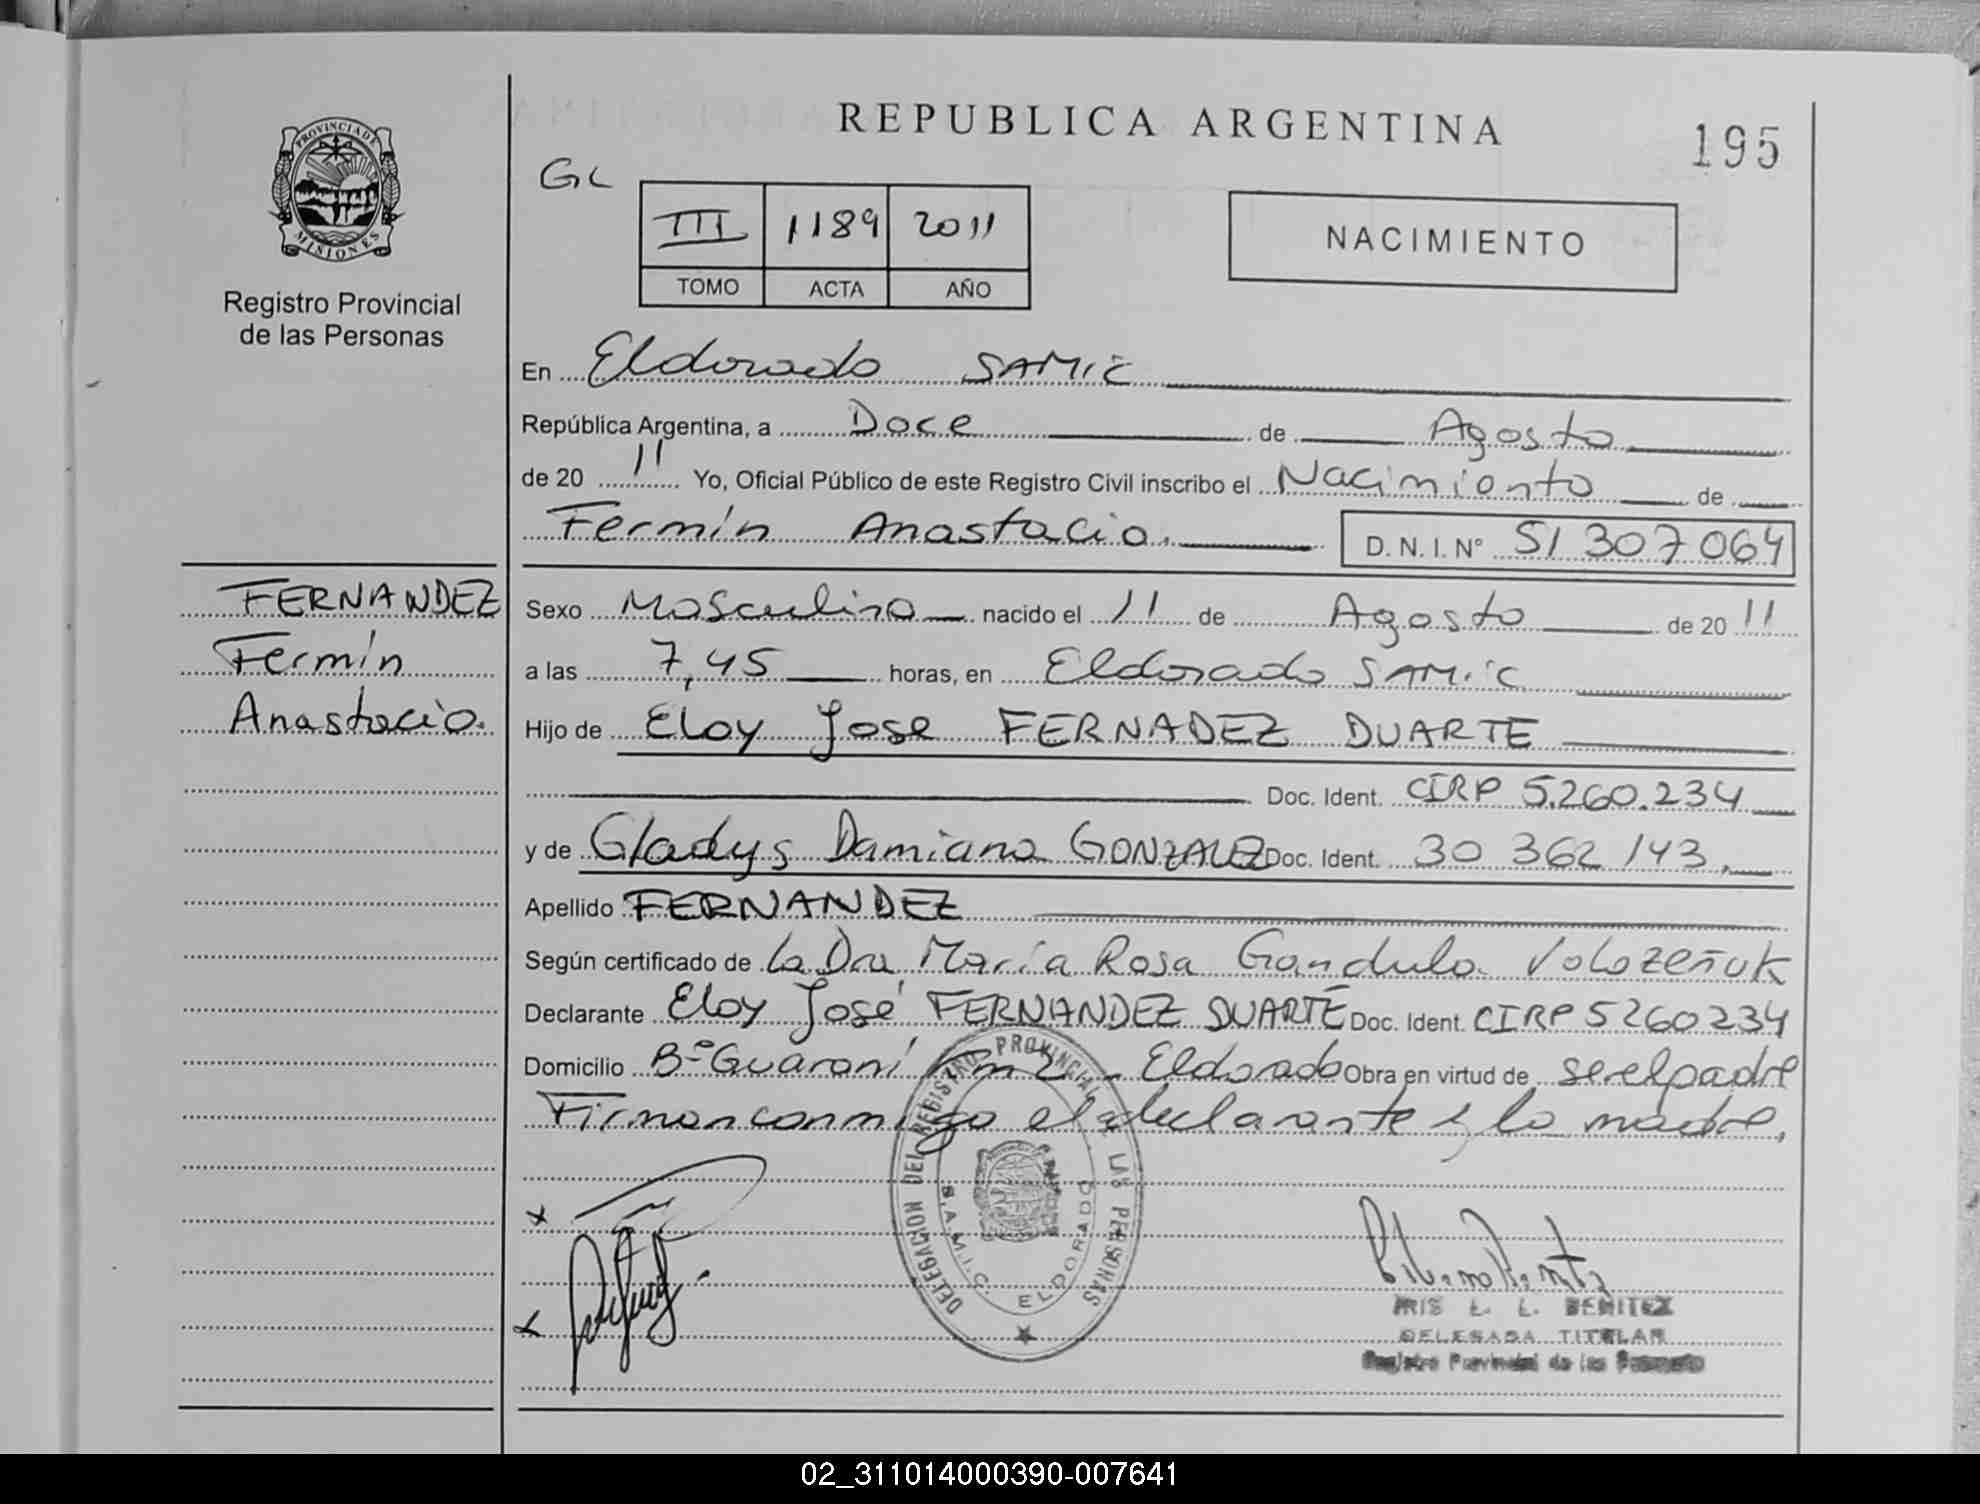 REPUBLICA ARGENTINA
195
PROVINCIA DE
MISIONES
Registro Provincial
de las Personas
GL
III 1189 2011
TOMO ACTA AÑO
NACIMIENTO
En Eldorado SAMIC
República Argentina, a Doce de Agosto
de 20 11 Yo, Oficial Público de este Registro Civil inscribo el Nacimiento de
Fermín Anastacio. D. N. I. Nº 51 307 064
FERNANDEZ
Fermín
Anastacio.
Sexo Masculino nacido el 11 de Agosto de 20 11
a las 7,45 horas, en Eldorado SAMIC
Hijo de Eloy Jose FERNADEZ DUARTE
Doc. Ident. CIRP 5.260.234
y de Gladys Damiana GONZALEZ Doc. Ident. 30 362 143.
Apellido FERNANDEZ
Según certificado de la Dra María Rosa Gandulo Volozeñuk
Declarante Eloy José FERNANDEZ DUARTE Doc. Ident. CIRP 5260234
Domicilio Bº Guaraní Km 2 - Eldorado Obra en virtud de ser el padre
Firman conmigo el declarante y la madre.
DELEGACION DEL REGISTRO PROVINCIAL LAS PERSONAS
S.A.M.I.C. ELDORADO
IRIS E. L. BENITEZ
DELEGADA TITULAR
Registro Provincial de las Personas
02_311014000390-007641